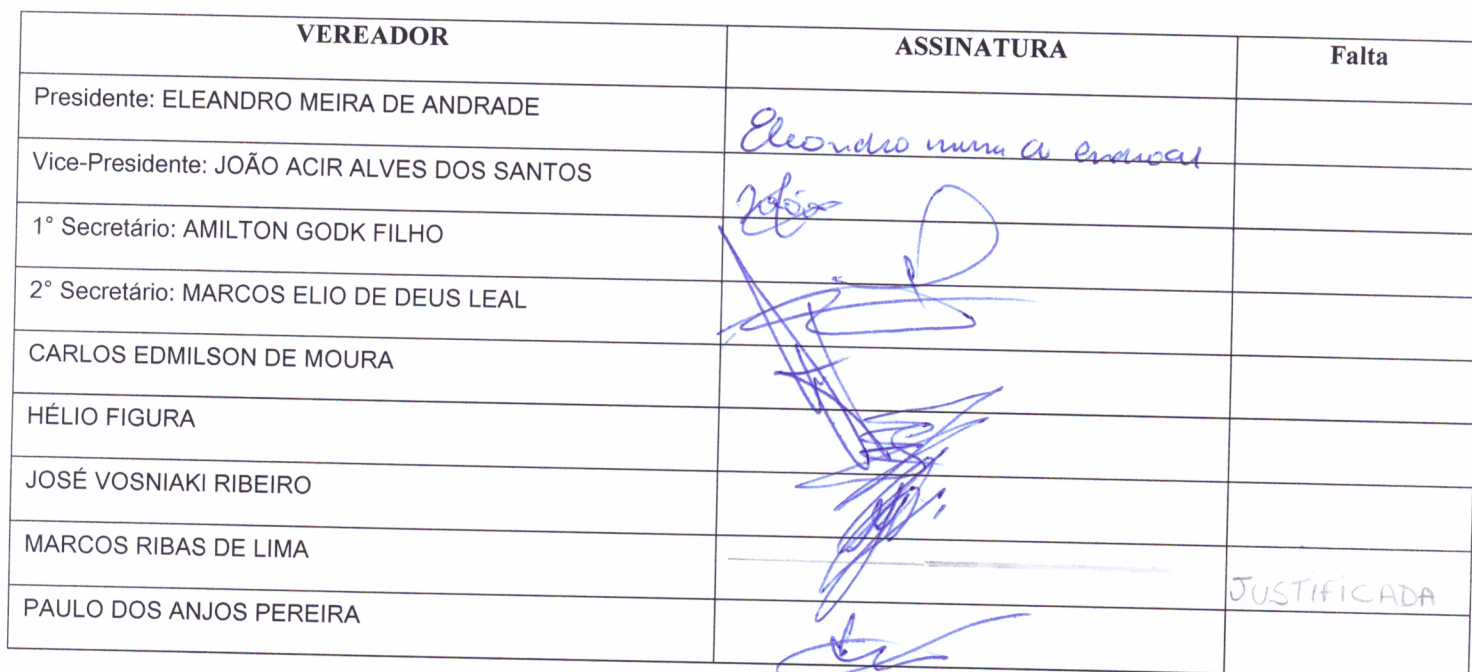 VEREADOR ASSINATURA Falta
Presidente: ELEANDRO MEIRA DE ANDRADE
Eleandro
Vice-Presidente: JOÃO ACIR ALVES DOS SANTOS
1° Secretário: AMILTON GODK FILHO
2° Secretário: MARCOS ELIO DE DEUS LEAL
CARLOS EDMILSON DE MOURA
HÉLIO FIGURA
JOSÉ VOSNIAKI RIBEIRO
MARCOS RIBAS DE LIMA
JUSTIFICADA
PAULO DOS ANJOS PEREIRA